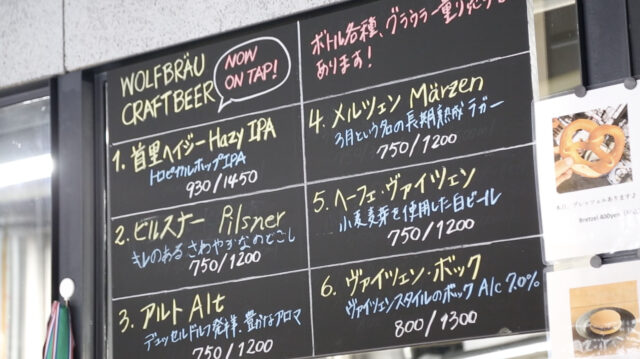 WOLFBRÄU
CRAFTBEER
NOW
ON TAP!
1. 首里ヘイジー Hazy IPA
トロピカルホップIPA
930/1450
2. ピルスナー Pilsner
キレのある さわやかなのどごし
750/1200
3. アルト Alt
デュッセルドルフ発祥、豊かなアロマ
750/1200
ボトル各種、グラウラー量り売りも
あります!
4. メルツェン Märzen
3月という名の長期熟成ラガー
750/1200
5. ヘーフェ・ヴァイツェン
小麦麦芽を使用した白ビール
750/1200
6. ヴァイツェン・ボック
ヴァイツェンスタイルのボック Alc 7.0%
800/1300
プレッツェルあります
Bretzel